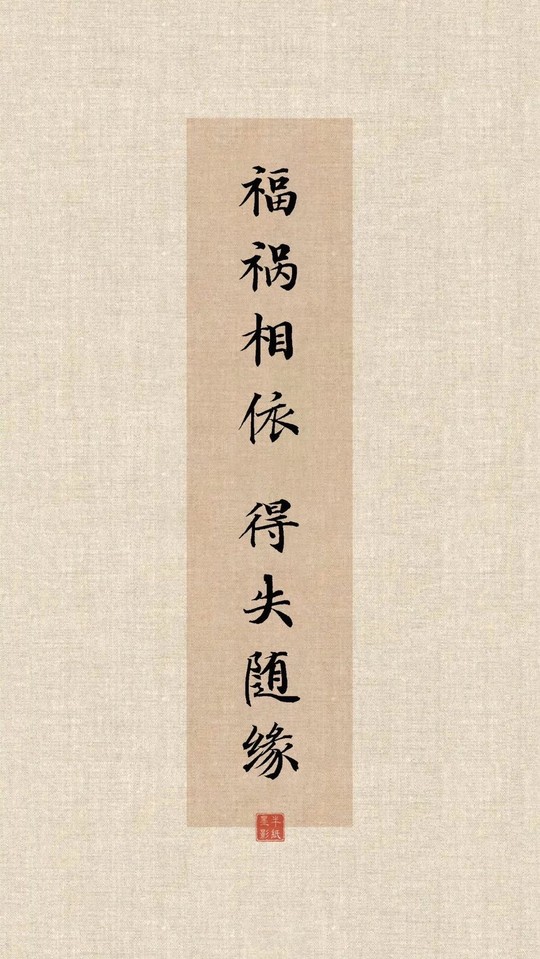 福祸相依 得失随缘
半纸
墨影